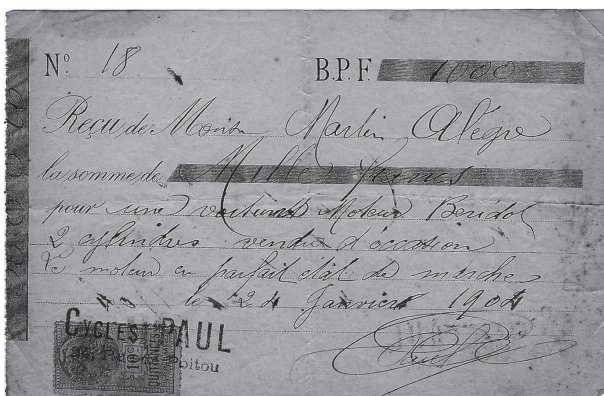 Nº 18 B.P.F. 1000
Reçu de Martin Alègre
la somme de Mille francs
pour une voiturette Moteur
2 cylindres vendu d'occasion
Le moteur en parfait état de marche
le 24 Janvier 1904
CYCLES PAUL
Poitou